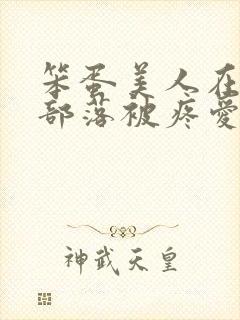 笨蛋美人在
部落被疼愛
神武天皇